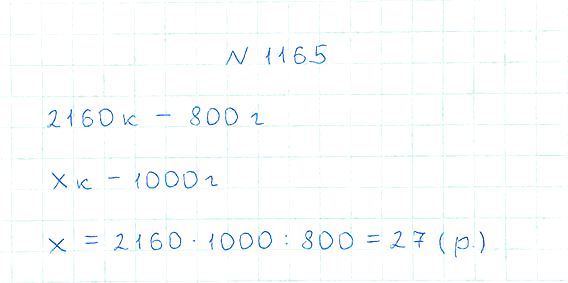 N 1165
2160 к – 800 г
x к – 1000 г
x = 2160 · 1000 : 800 = 27 (р.)